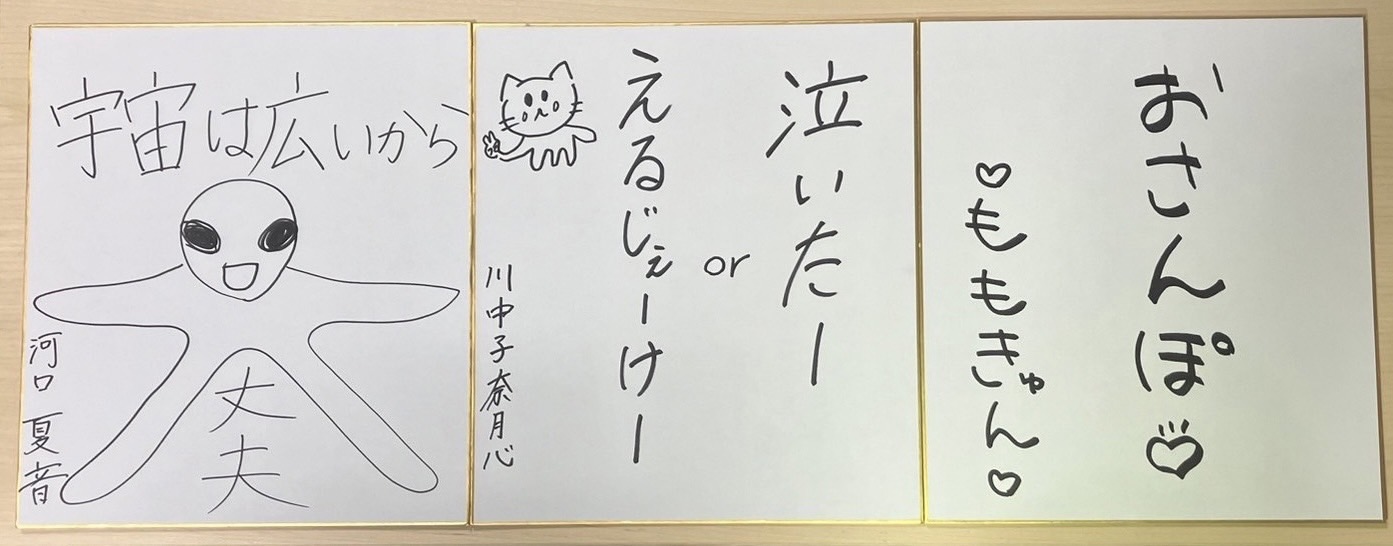 宇宙は広いから
丈夫
河口 夏音
泣いたー
or
えるじぇーけー
川中子奈月心
おさんぽ♡
♡ももきゅん♡